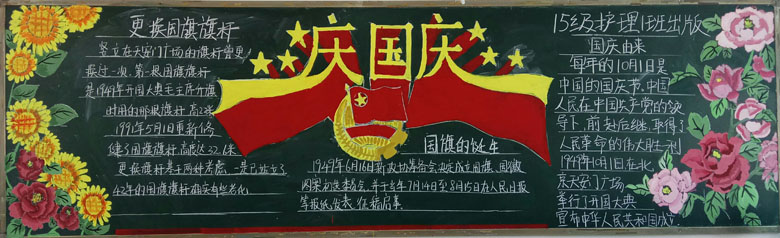 更换国旗旗杆
竖立在天安门广场的旗杆曾更
换过一次,第一根国旗旗杆
是1949年开国大典毛主席升旗
时用的那根旗杆,高22米
1991年5月1日重新修
建,国旗旗杆高达32.6米
更换旗杆基于两种考虑,一是已站立了
42年的国旗旗杆确实有些老化
庆国庆
国旗的诞生
1949年6月16日新政协筹备会决定成立国旗、国徽
图案初选委员会,并于当年7月14日至8月15日在人民日报
等报纸发表征稿启事
15级护理1班出版
国庆由来
每年的10月1日是
中国的国庆节,中国
人民在中国共产党的领
导下,前赴后继,取得了
人民革命的伟大胜利
1949年10月1日在北
京天安门广场
举行了开国大典
宣布中华人民共和国成立